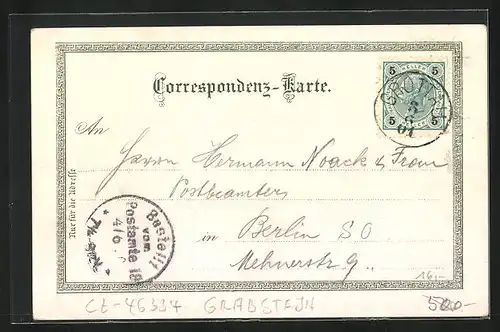 Correspondenz-Karte.
5 HELLER 5
5 5
GROTTAU
3
6
01
An
Herrn Hermann Noack & Frau
Postbeamter
in Berlin SO
Nur für die Adresse
Bestellt
vom
Postamte 18
4/6
16,-
Ct-46334 GRABSTEJN
500-